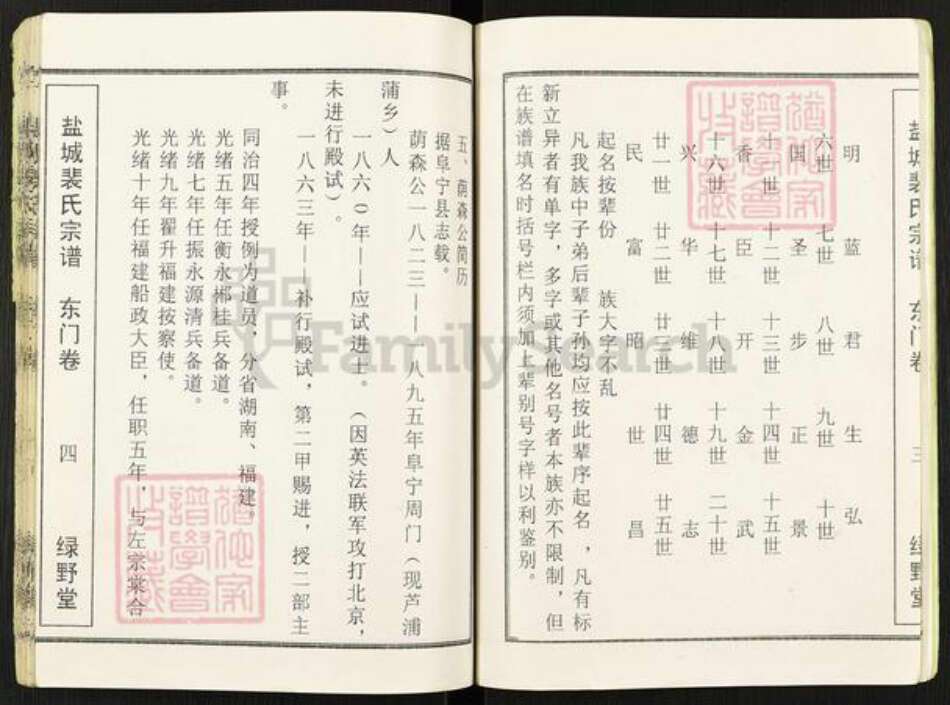 盐城裴氏宗谱 东门卷 三 绿野堂
明 蓝 君 生 弘
六世 七世 八世 九世 十世
国 圣 步 正 景
十一世 十二世 十三世 十四世 十五世
香 臣 开 金 武
十六世 十七世 十八世 十九世 二十世
兴 华 维 德 志
廿一世 廿二世 廿三世 廿四世 廿五世
民 富 昭 世 昌
起名按辈份 族大字不乱
凡我族中子弟后辈子孙均应按此辈序起名，凡有标
新立异者有单字，多字或其他名号者本族亦不限制，但
在族谱填名时括号栏内须加上辈别号字样以利鉴别。
猶他家譜學會收藏
五、荫森公简历
据阜宁县志载。
荫森公一八二三——一八九五年阜宁周门（现芦浦
蒲乡）人
一八六０年——应试进士。（因英法联军攻打北京，
未进行殿试）。
一八六三年——补行殿试，第二甲赐进，授二部主
事。
同治四年授例为道员，分省湖南、福建。
光绪五年任衡永郴桂兵备道。
光绪七年任振永源清兵备道。
光绪九年翟升福建按察使。
光绪十年任福建船政大臣，任职五年，与左宗棠合
盐城裴氏宗谱 东门卷 四 绿野堂
猶他家譜學會收藏
FamilySearch